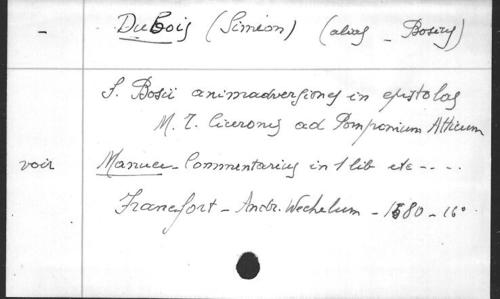 - DuBois (Siméon) (alias - Bosius)
S. Bosii animadversiones in epistolas
M. T. Ciceronis ad Pomponium Atticum
voir Manuce - Commentarius in 1 lib etc - - - -
Francfort - Andr. Wechelum - 1580 - 16°